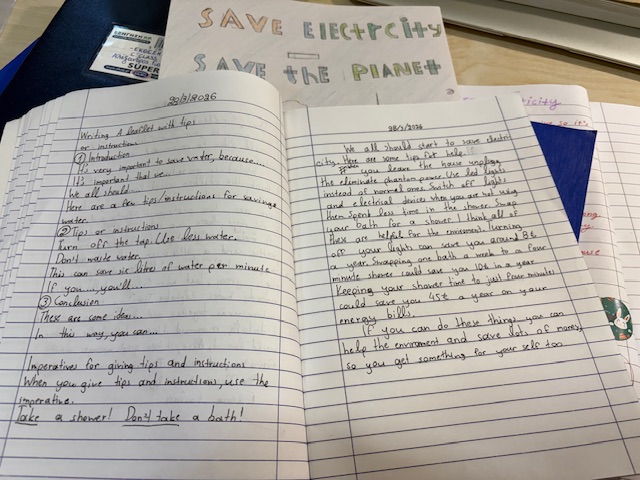 SAVE ElEctrcity
SAVE thE PlANEt
SUPER
icity
23/3/2026
Writing A leaflet with tips
or instructions
① Introduction
It's very important to save water, because....
It's important that we...
We all should....
Here are a few tips/instructions for savinga
water.
② Tips or instructions
Turn off the tap. Use less water.
Don't waste water.
This can save six litres of water per minute
If you ...., you'll....
③ Conclusion
These are some idea...
In this way, you can...
Imperatives for giving tips and instructions
When you give tips and instructions, use the
imperative.
Take a shower! Don't take a bath!
23/3/2026
We all should start to save electri
city. Here are some tips that help.
you leave the house unplugg
the eliminate phantom power. Use led lights
instead of normal ones. Switch off lights
and electrical devices when you are not using
them. Spend less time in the shower. Swap
your bath for a shower. I think all of
these are helpful for the enviroment. Turning
off your lights can save you around 8£
a year. Swapping one bath a week to a four
minute shower could save you 10£ in a year
Keeping your shower time to just four minutes
could save you 45£ a year on your
energy bills.
If you can do these things you can
help the enviroment and save lots of money,
so you get something for your self too